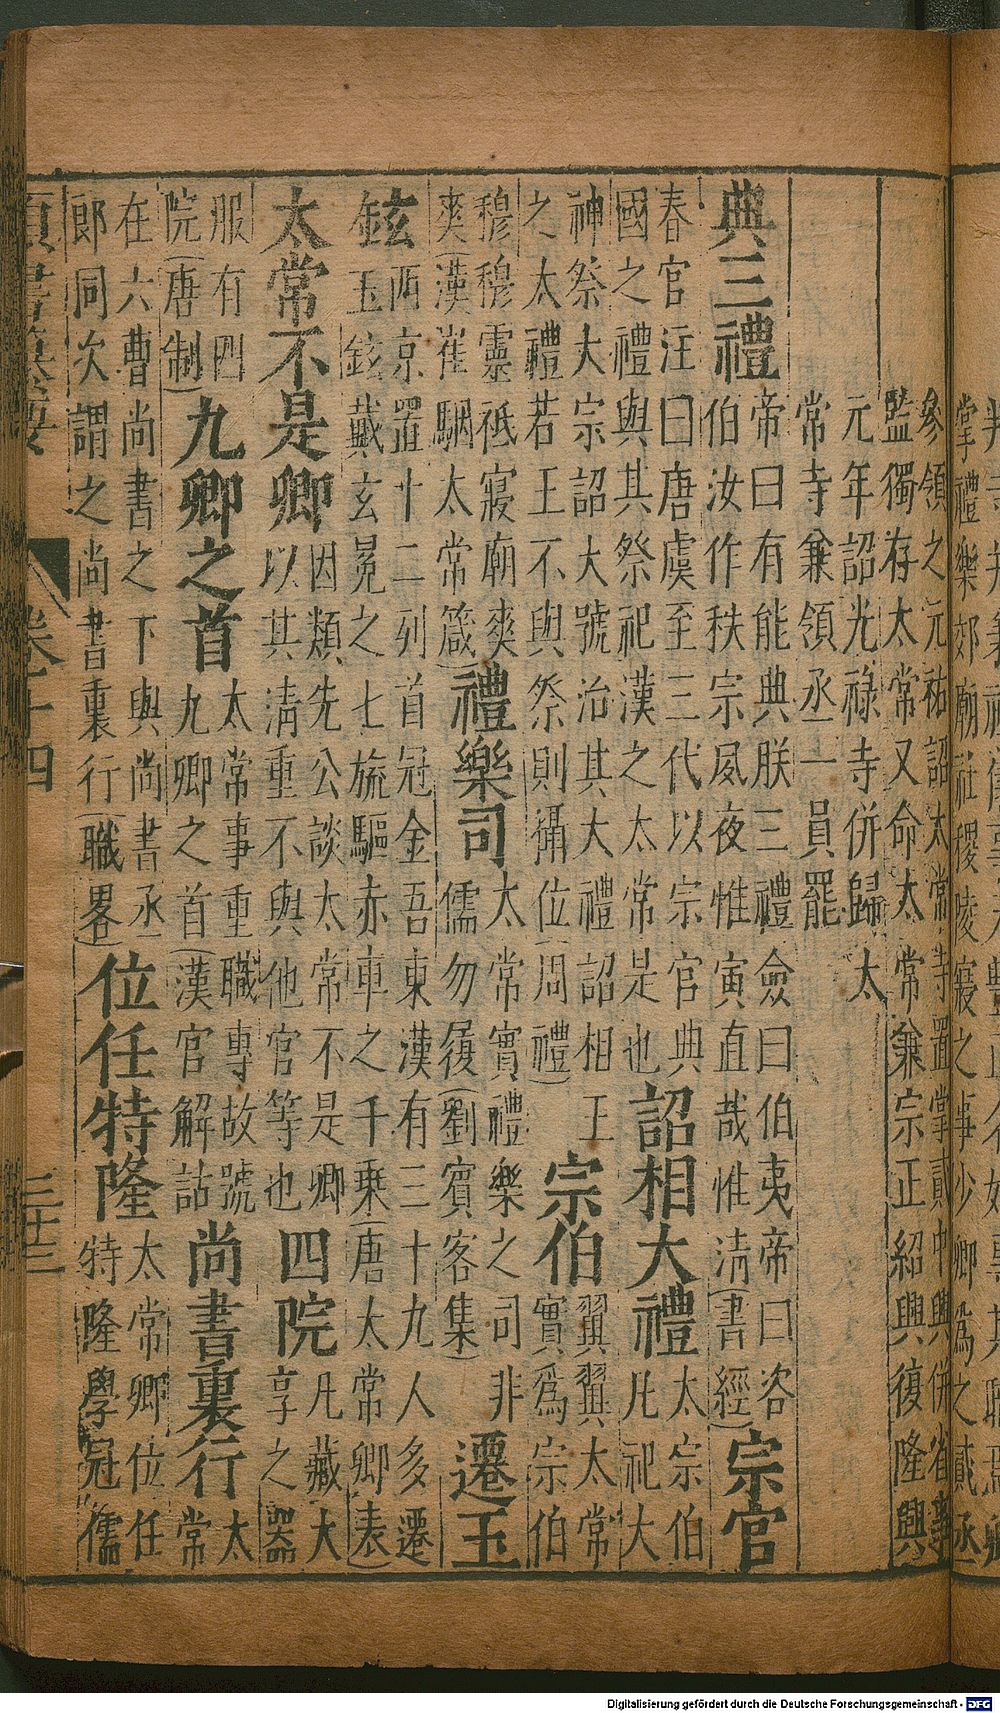 參領之元祐詔太常寺置掌貳中興併省事
監獨存太常又命太常兼宗正紹興復隆興
元年詔光祿寺併歸太
常寺兼領丞一員罷
典三禮
帝曰有能典朕三禮僉曰伯夷帝曰咨
伯汝作秩宗夙夜惟寅直哉惟淸(書經)
宗官
春官注曰唐虞至三代以宗官典
國之禮與其祭祀漢之太常是也
詔相大禮
太宗伯
凡祀大
神祭大宗詔大號治其大禮詔相王
之太禮若王不與祭則攝位(周禮)
宗伯
翼翼太常
實爲宗伯
穆穆靈祗寢廟奕
奕(漢崔駰太常箴)
禮樂司
太常實禮樂之司非
儒勿履(劉賓客集)
遷玉
鉉
西京置十二列首冠金吾東漢有三十九人多遷
玉鉉戴玄冕之七旒驅赤車之千乗(唐太常卿表)
太常不是卿
因類先公談太常不是卿
以其淸重不與他官等也
四院
凡藏大
享之器
服有四
院(唐制)
九卿之首
太常事重職專故號
九卿之首(漢官解詁
尚書裏行
太
常
在六曹尚書之下與尚書丞
郎同次謂之尚書裏行(職畧)
位任特隆
太常卿位任
特隆學冠儒
卷二十四
三十三
Digitalisierung gefördert durch die Deutsche Forschungsgemeinschaft - DFG